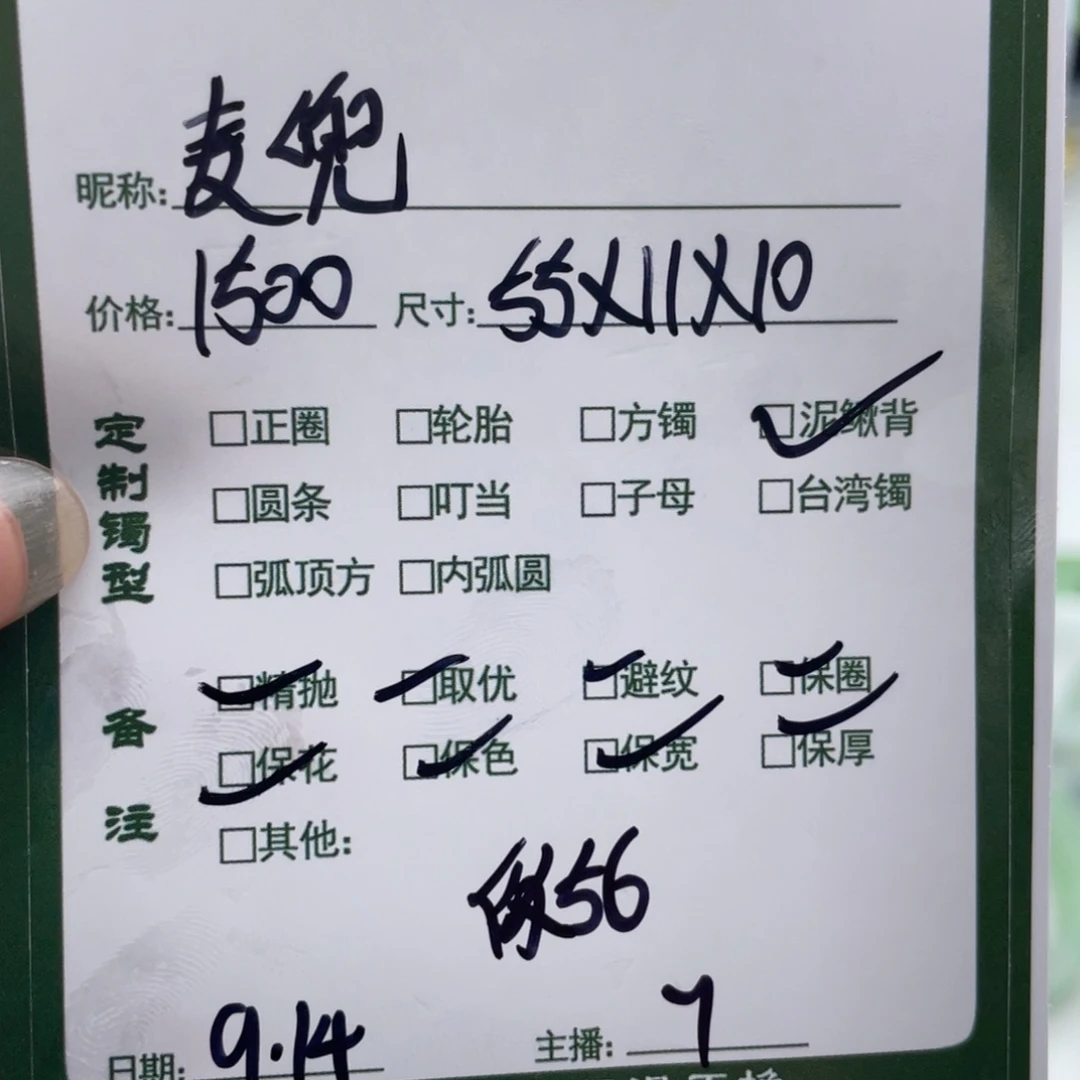 昵称: 麦兜
价格: 1500 尺寸: 55X11X10
定制镯型
□正圈 □轮胎 □方镯 ☑泥鳅背
□圆条 □叮当 □子母 □台湾镯
□弧顶方 □内弧圆
备注
☑精抛 ☑取优 ☑避纹 ☑保圈
☑保花 ☑保色 ☑保宽 ☑保厚
□其他:
做56
日期: 9.14 主播: 7